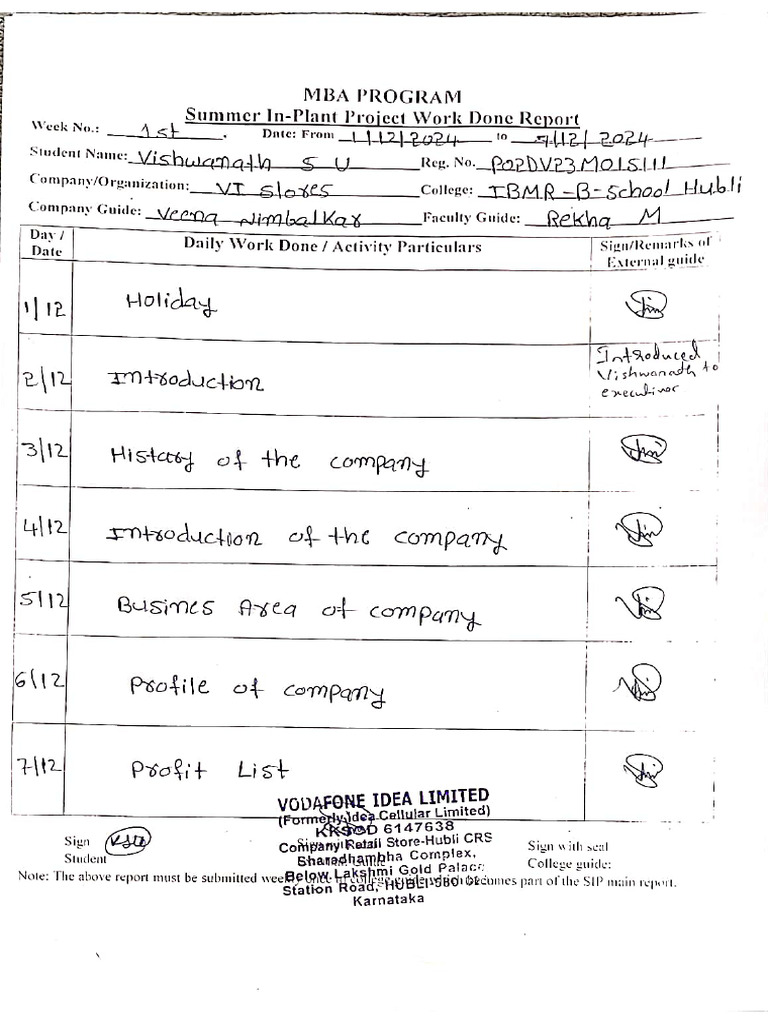 MBA PROGRAM
Summer In-Plant Project Work Done Report
Week No.: 1st . Date: From 1/12/2024 to 7/12/2024
Student Name: Vishwanath S U Reg. No. P02DV23M015111
Company/Organization: VI Stores College: IBMR-B-School Hubli
Company Guide: Veena Nimbalkar Faculty Guide: Rekha M
Day / Date Daily Work Done / Activity Particulars Sign/Remarks of External guide
1/12 Holiday
2/12 Introduction Introduced Vishwanath to
3/12 History of the company
4/12 Introduction of the company
5/12 Busines Area of company
6/12 Profile of company
7/12 Profit List
VODAFONE IDEA LIMITED
(Formerly Idea Cellular Limited)
6147638
Company Retail Store-Hubli CRS
Sharadhambha Complex,
Below Lakshmi Gold Palace
Station Road, HUBLI-580
Karnataka
Sign Student
Sign with seal College guide:
Note: The above report must be submitted becomes part of the SIP main report.